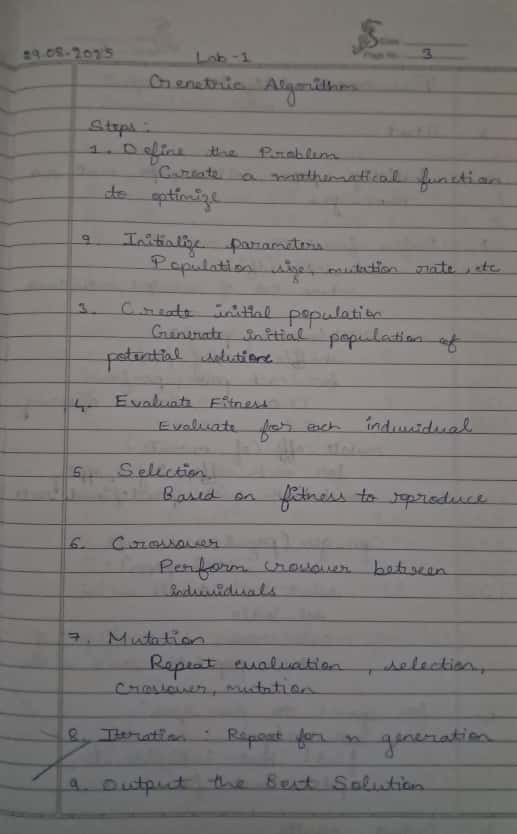 29.08.2025 Lab-1 3
Genetric Algorithm
Steps:
1. Define the Problem
Create a mathematical function
to optimize
2. Initialize parameters
Population size, mutation rate, etc
3. Create initial population
Generate initial population of
potential solutions
4. Evaluate Fitness
Evaluate for each individual
5. Selection
Based on fitness to reproduce
6. Crossover
Perform crossover between
individuals
7. Mutation
Repeat evaluation, selection,
crossover, mutation
8. Iteration: Repeat for n generation
9. Output the Best Solution